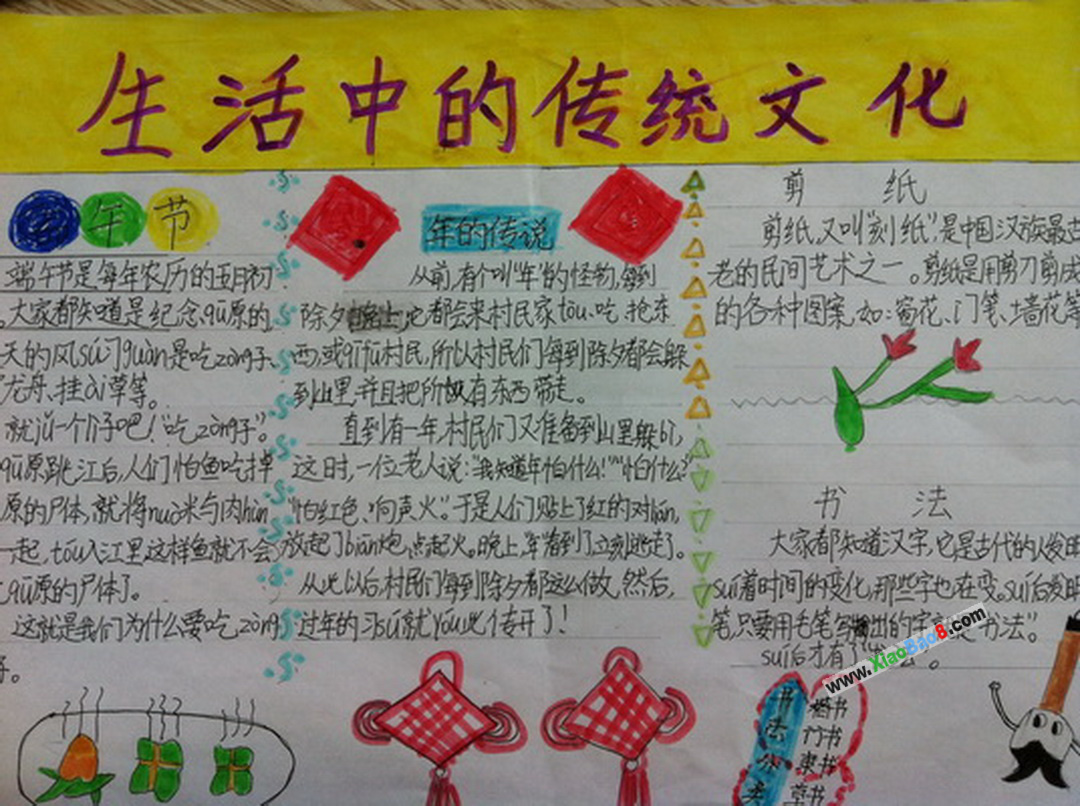 生活中的传统文化
午节
端午节是每年农历的五月初
。大家都知道是纪念qū原的
天的风sú习guàn是吃zòng子、
龙舟、挂ài草等。
就jǔ一个例子吧！“吃zòng子”。
qū原跳江后，人们怕鱼吃掉
原的尸体，就将nuò米与肉hùn
一起，tóu入江里这样鱼就不会
qū原的尸体了。
这就是我们为什么要吃zòng
子。
年的传说
从前，有个叫“年”的怪物，每到
除夕晚上，它都会来村民家tōu吃、抢东
西，或qīfù村民，所以村民们每到除夕都会躲
到山里，并且把所有东西带走。
直到有一年，村民们又准备到山里躲bì，
这时，一位老人说：“我知道年怕什么！”“怕什么？”
“怕红色、响声、火”。于是人们贴上了红的对lián，
放起了biān炮，点起火。晚上，“年”看到了，立刻逃走了。
从此以后，村民们每到除夕都这么做，然后，
过年的习sú就yóu此传开了！
剪纸
剪纸，又叫“刻纸”，是中国汉族最古
老的民间艺术之一。剪纸是用剪刀剪成
的各种图案，如：窗花、门笺、墙花等
书法
大家都知道汉字，它是古代的人发明
suí着时间的变化，那些字也在变。suí后发明
笔，只要用毛笔写出的字是“书法”。
suí后才有了
www.XiaoBao8.com
书法分类
楷书
行书
隶书
草书